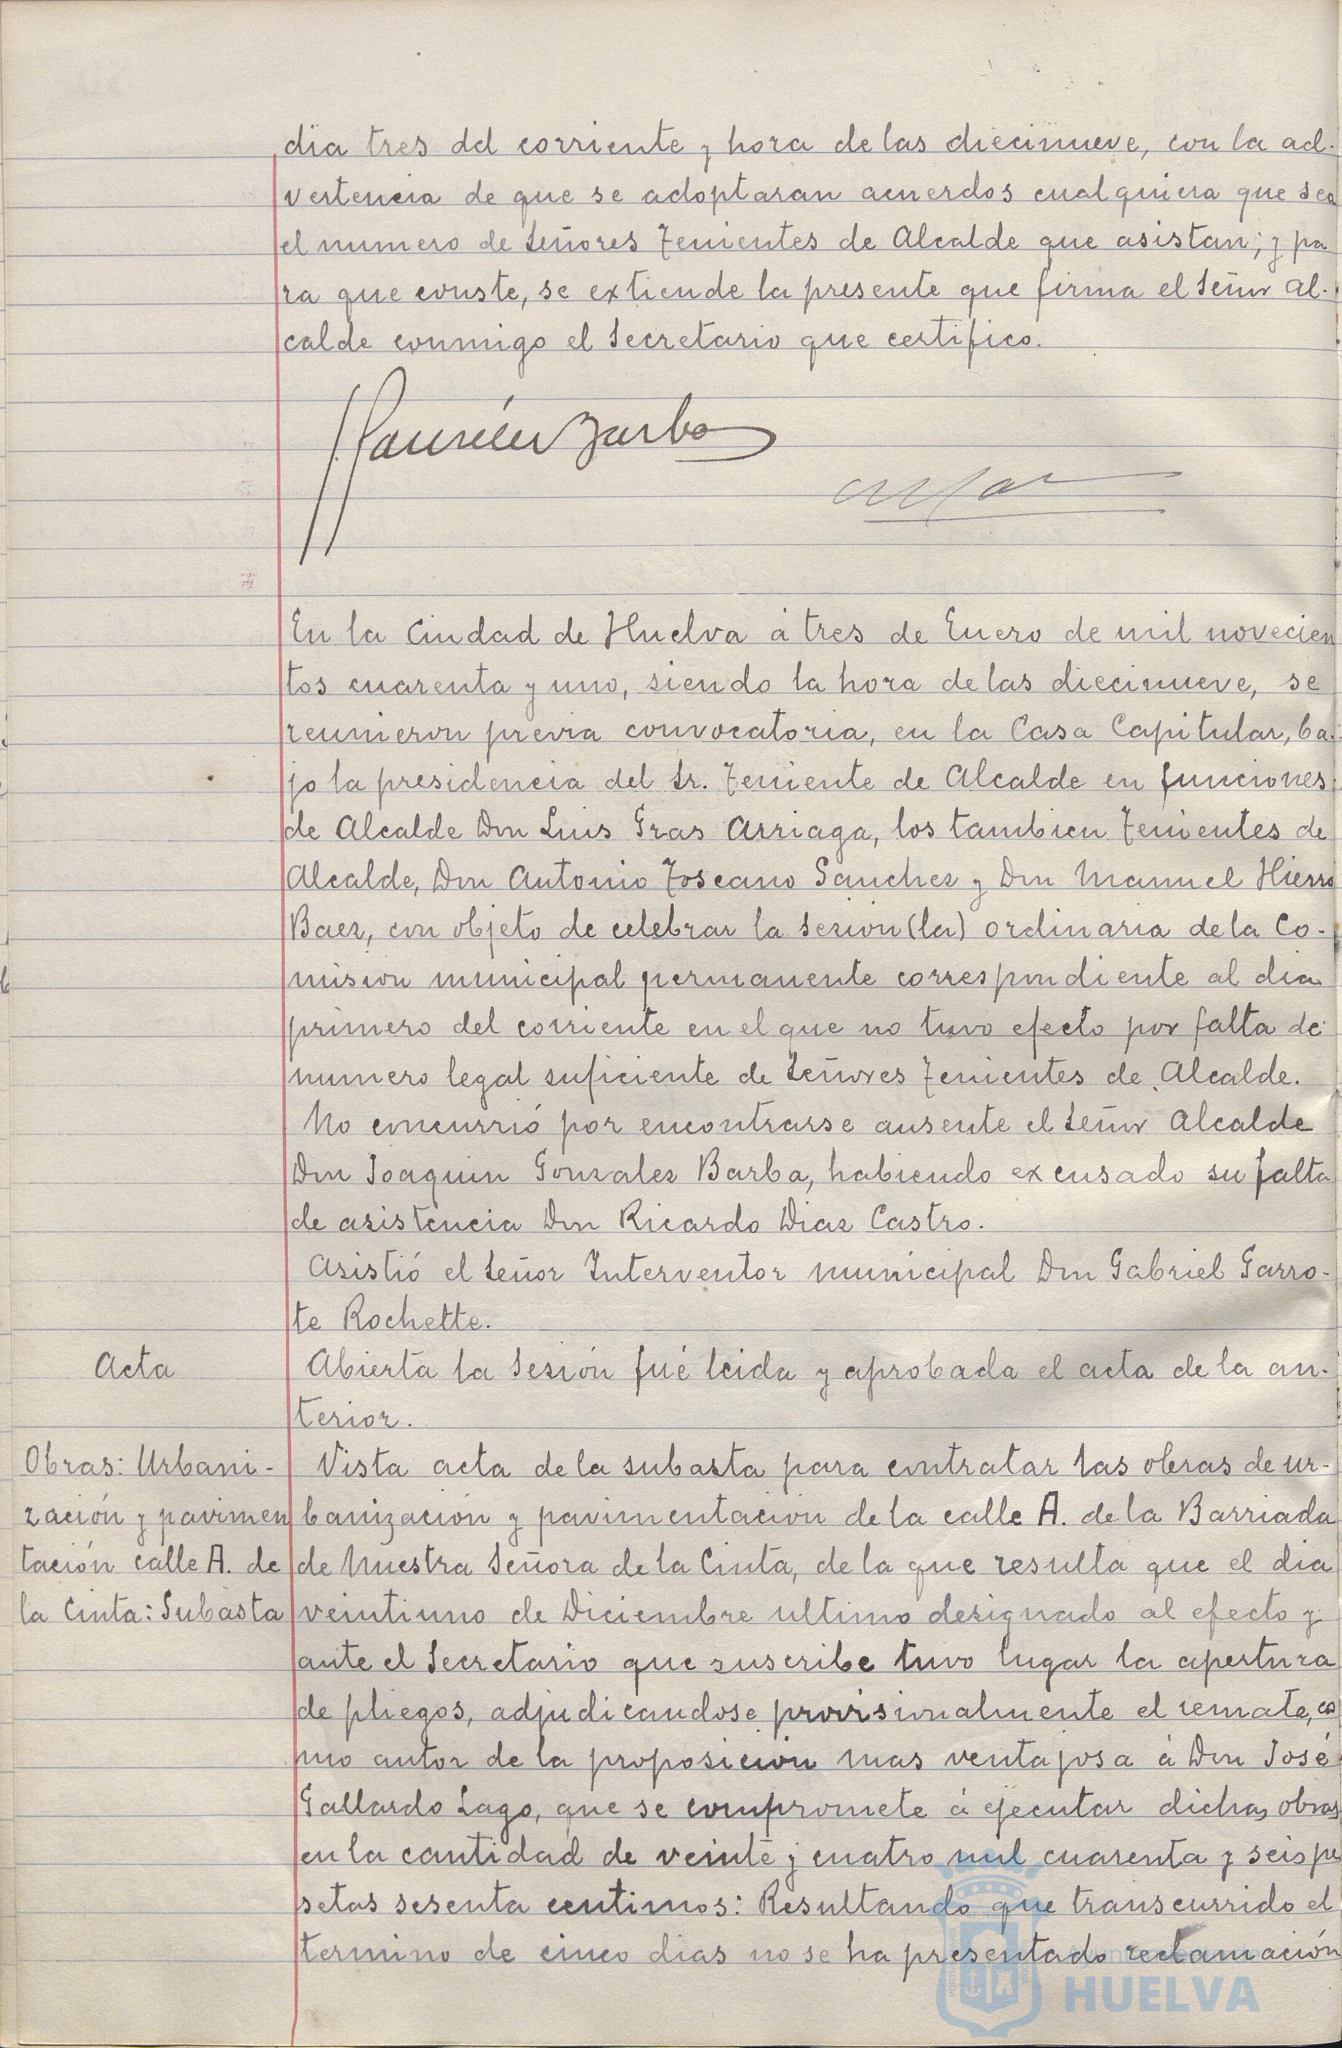 dia tres del corriente y hora de las diecinueve, con la ad-
vertencia de que se adoptaran acuerdos cualquiera que sea
el numero de Señores Tenientes de Alcalde que asistan; y pa
ra que conste, se extiende la presente que firma el Señor Al-
calde conmigo el Secretario que certifico.
En la Ciudad de Huelva á tres de Enero de mil novecien
tos cuarenta y uno, siendo la hora de las diecinueve, se
reunieron previa convocatoria, en la Casa Capitular, ba-
jo la presidencia del Sr. Teniente de Alcalde en funciones
de Alcalde Don Luis Gras Arriaga, los tambien Tenientes de
Alcalde, Don Antonio Toscano Sanchez y Don Manuel Hierro
Baez, con objeto de celebrar la sesion (la) ordinaria de la Co-
mision municipal permanente correspondiente al dia
primero del corriente en el que no tuvo efecto por falta de
numero legal suficiente de Señores Tenientes de Alcalde.
No concurrió por encontrarse ausente el Señor Alcalde
Don Joaquin Gonzalez Barba, habiendo excusado su falta
de asistencia Don Ricardo Diaz Castro.
Asistió el Señor Interventor municipal Don Gabriel Garro-
te Rochette.
Acta
Abierta la Sesión fué leida y aprobada el acta de la an-
terior.
Obras: Urbani-
zación y pavimen
tación calle A. de
la Cinta: Subasta
Vista acta de la subasta para contratar las obras de ur-
banización y pavimentacion de la calle A. de la Barriada
de Nuestra Señora de la Cinta, de la que resulta que el dia
veintiuno de Diciembre ultimo designado al efecto y
ante el Secretario que suscribe tuvo lugar la apertura
de pliegos, adjudicandose provisionalmente el remate, co
mo autor de la proposición mas ventajosa á Don José
Gallardo Lago, que se compromete á ejecutar dichas obras
en la cantidad de veinte y cuatro mil cuarenta y seis pe
setas sesenta centimos: Resultando que transcurrido el
termino de cinco dias no se ha presentado reclamación
HUELVA